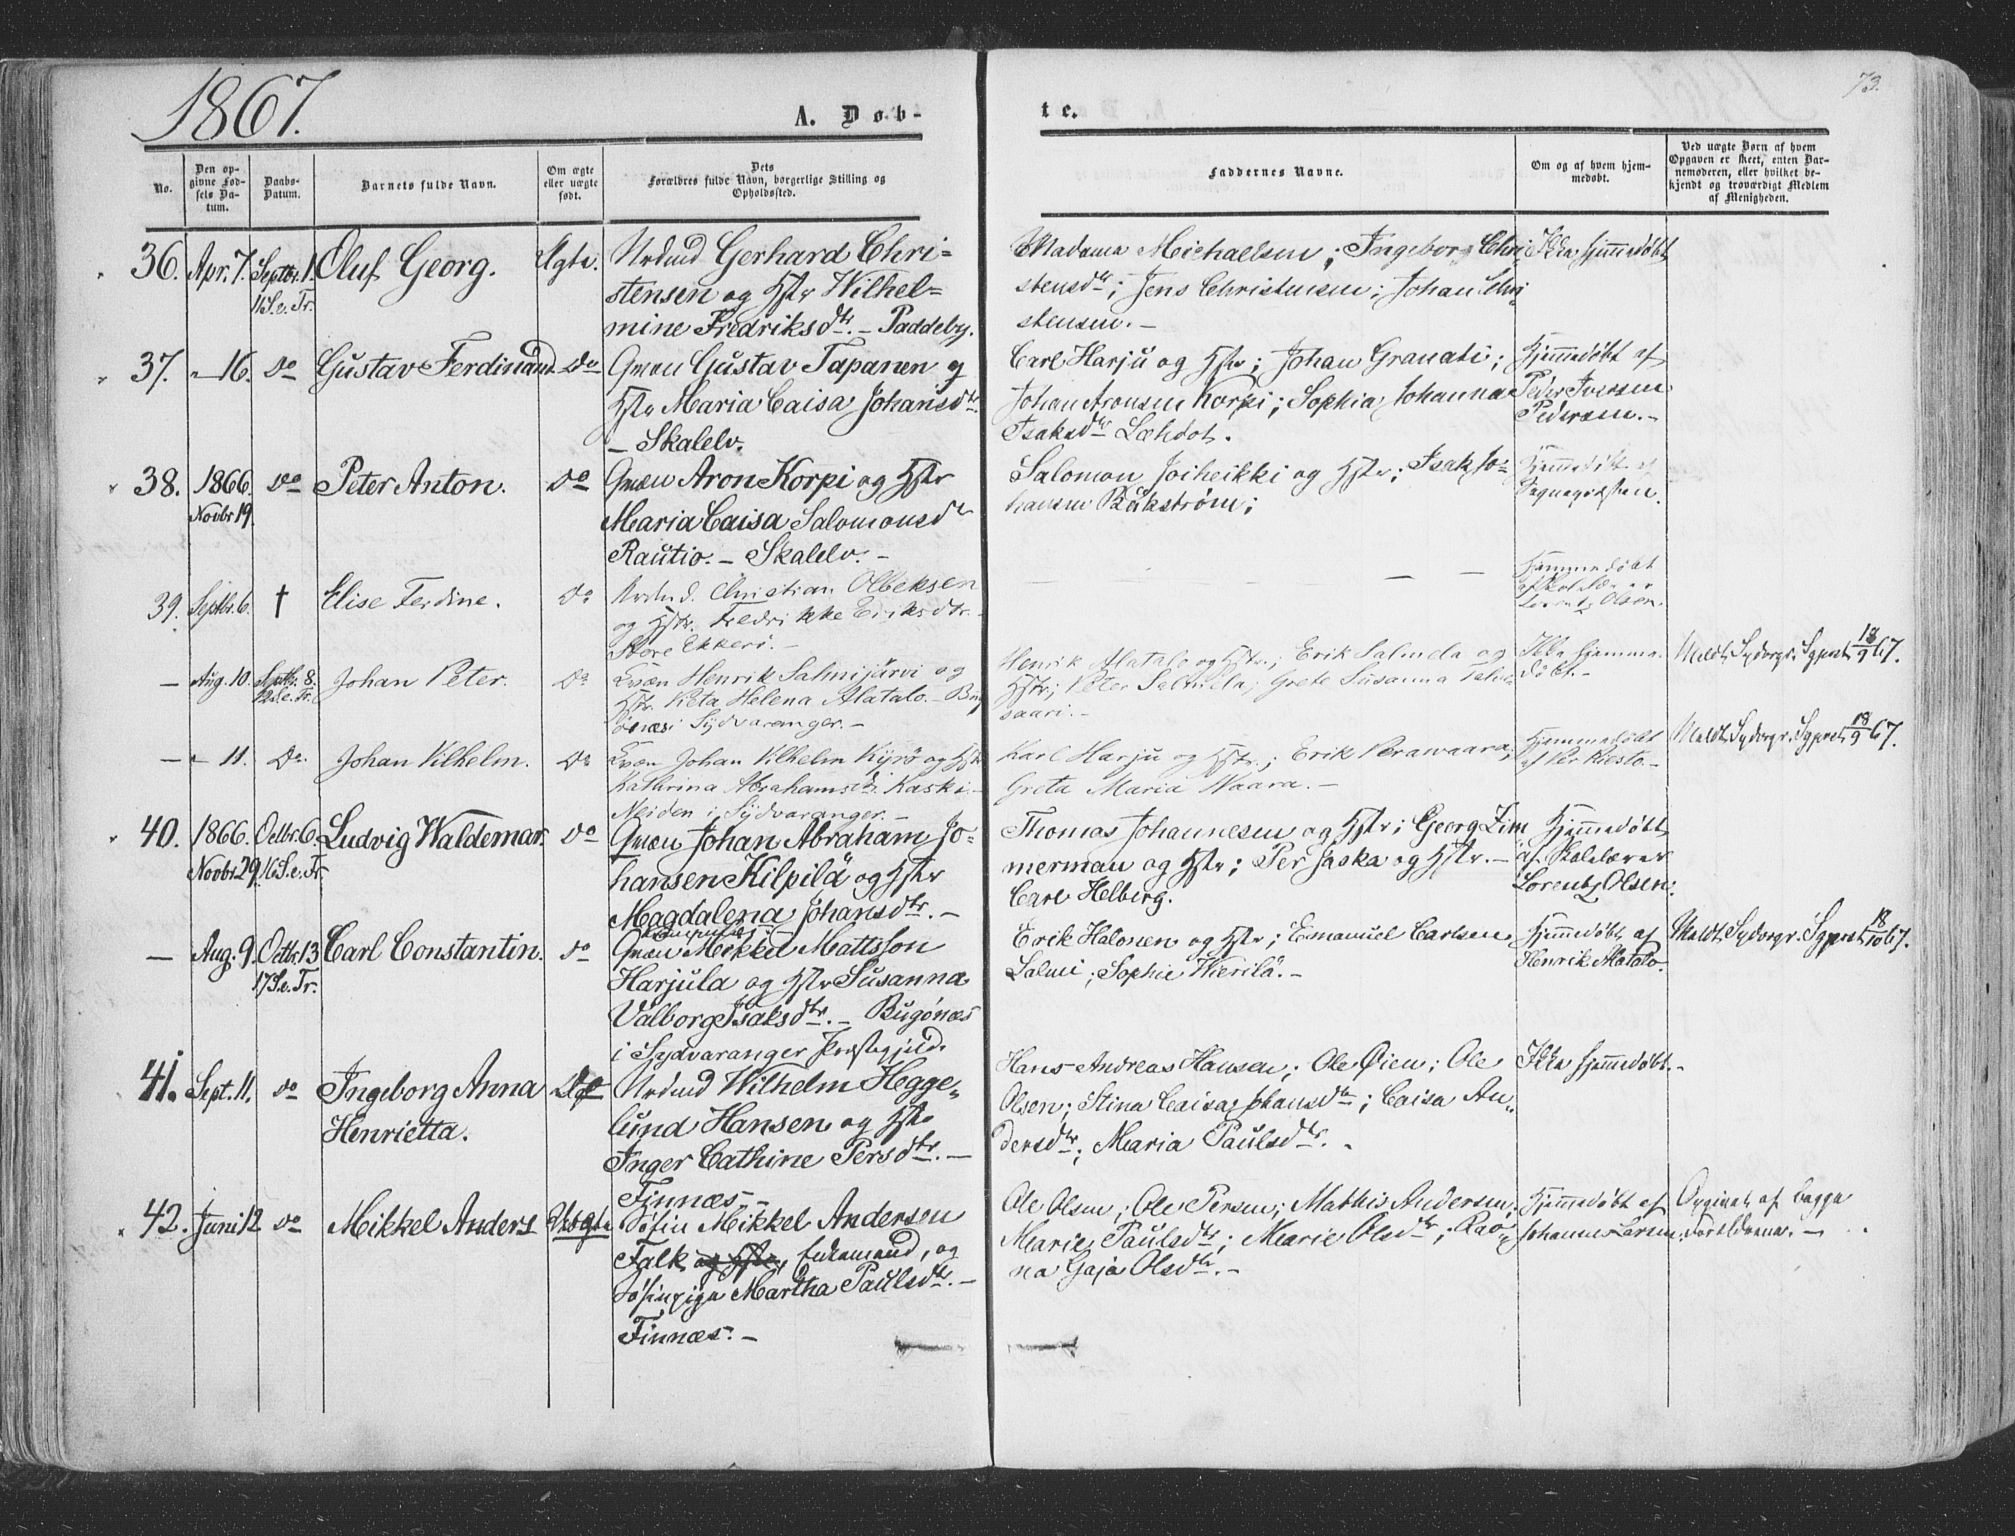 1867.
73.
A. Døb-
te.
No.
Den op-
givne Fød-
sels Da-
tum.
Daabs-
Datum.
Barnets fulde Navn.
Om ægte
eller uægte
født.
Dets
Forældres fulde Navn, borgerlige Stilling og
Opholdssted.
Faddernes Navne.
Om og af hvem hjem-
medøbt.
Ved uægte Børn af hvem
Opgaven er skeet, enten Bar-
nemoderen, eller hvilket be-
kjendt og troværdigt Medlem
af Menigheden.
36. Apr. 7. Septbr. 1. Oluf Georg. Ægte. Nrdmd Gerhard Chri-
11 S. e. Tr.
stensen og Hstr Wilhel-
mine Fredriksdtr. - Paddeby.
Madame Michaelsen; Ingeborg Chri-
stensdtr; Jens Christensen; Johan Chri-
stensen. -
Ikke hjemmedøbt
37. " 16. Do Gustav Ferdinand Do Qvæn Gustav Tapanen og
Hstr Maria Caisa Johansdtr.
- Skalelv.
Carl Harju og Hstr; Johan Granati;
Johan Aronsen Korpi; Sophia Johanna
Isaksdtr Læhdot.
Hjemmedøbt af
Peder Iversen
Pedersen. -
38. 1866. Do Peter Anton. Do Qvæn Aron Korpi og Hstr
Novbr 19.
Maria Caisa Salomonsdtr
Rautio. - Skalelv. -
Salomon Joiheikki og Hstr; Isak Jo-
hansen Bækström;
Hjemmedøbt af
39. Septbr. 6. † Elise Ferdine. Do Nrdmd. Christian Olbeksen
og Hstr. Fredrikke Eriksdtr. -
Store Ekkerö. -
Hjemmedøbt
Lorentz Olsen.
- Aug. 10. Septbr. 8. Johan Peter. Do Kvæn Henrik Salmijärvi og
12 S. e. Tr.
Hstr. Reta Helena Alatalo. - Bug-
önæs i Sydvaranger. -
Henrik Alatalo og Hstr.; Erik Salmela og
Hstr; Peter Salmela; Grete Susanna
saari. -
Ikke hjemme-
døbt. -
Meldt Sydvgr. Sgpræst 18/9 67.
- " 11. Do. Johan Vilhelm. Do Kvæn Johan Vilhelm Kyrö og Hstr
Katharina Abrahamsdtr. Kaski. -
Neiden i Sydvaranger. -
Karl Harju og Hstr.; Erik Perawaara;
Greta Maria Waara. -
Hjemmedøbt
af Per Riesto. -
Meldt Sydvgr. Sgpræst 18/9 67.
40. 1866. Octbr. 6. Ludvig Waldemar. Do Qvæn Johan Abraham Jo-
Novbr 29. 16 S. e. Tr
hansen Kilpilä og Hstr
Magdalena Johansdtr. -
Thomas Johannesen og Hstr; Georg Zim
mermann og Hstr; Per Jaska og Hstr. -
Carl Helberg.
Hjemmedøbt
af Skolelærer
Lorentz Olsen.
- Aug. 9. Octbr. 13 Carl Constantin. Do Qvæn Mikkel Mattsson
17 S. e. Tr.
Harjula og Hstr Susanna
Valborg Isaksdtr. - Bugönæs
i Sydvaranger Præstegjeld.
Erik Halonen og Hstr; Emanuel Carlsen
Salmi; Sophie Wierilä. -
Hjemmedøbt af
Henrik Alatalo.
Meldt Sydvgr. Sgpræst 18/10 67.
41. Sept. 11. Do Ingeborg Anna Do Nrdmd Wilhelm Hegge-
Henrietta.
lund Hansen og Hstr
Inger Cathine Persdtr. -
Finnæs. -
Hans Andreas Hansen; Ole Øien; Ole
Olsen; Stina Caisa Johansdtr; Caisa An-
dersdtr; Maria Paulsdtr. -
Ikke hjemmedøbt. -
42. Juni 12 Do Mikkel Anders Uægte Søfin Mikkel Andersen
Falk og Hstr, Enkemand, og
Søfinpige Martha Paulsdtr. -
Finnæs. -
Ole Olsen; Ole Persen; Mathis Andersen;
Marie Paulsdtr; Marie Olsdtr; Rao-
na Gaja Olsdtr. -
Hjemmedøbt af
Johannes Larsen.
Opgivet af begge
Forældrene. -